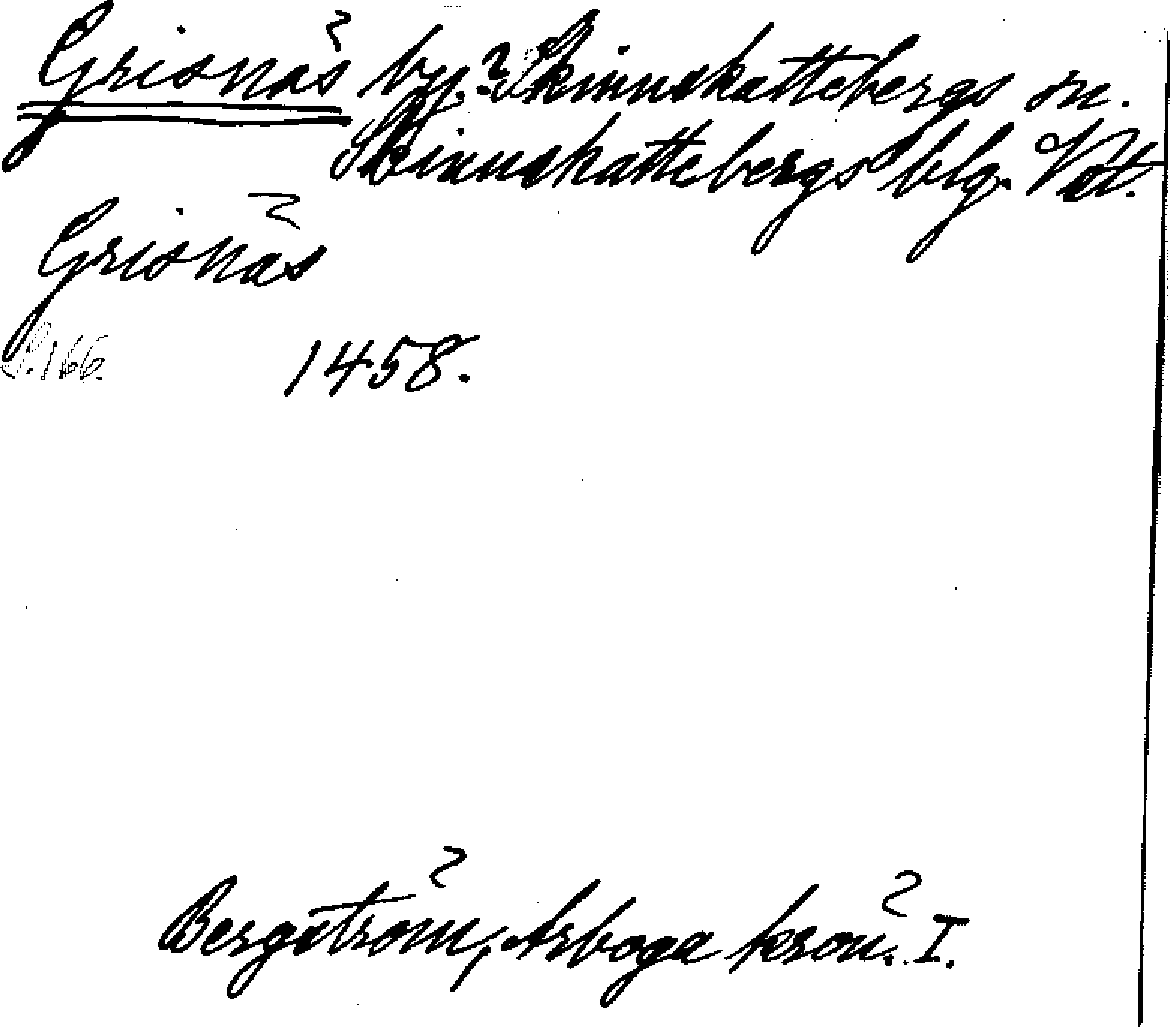 Grisnäs by. Skinnskattebergs sn.
Skinnskattebergs blg. Vstm.
Grisnäs
S. 166. 1458.
Bergström, Arboga krön. I.